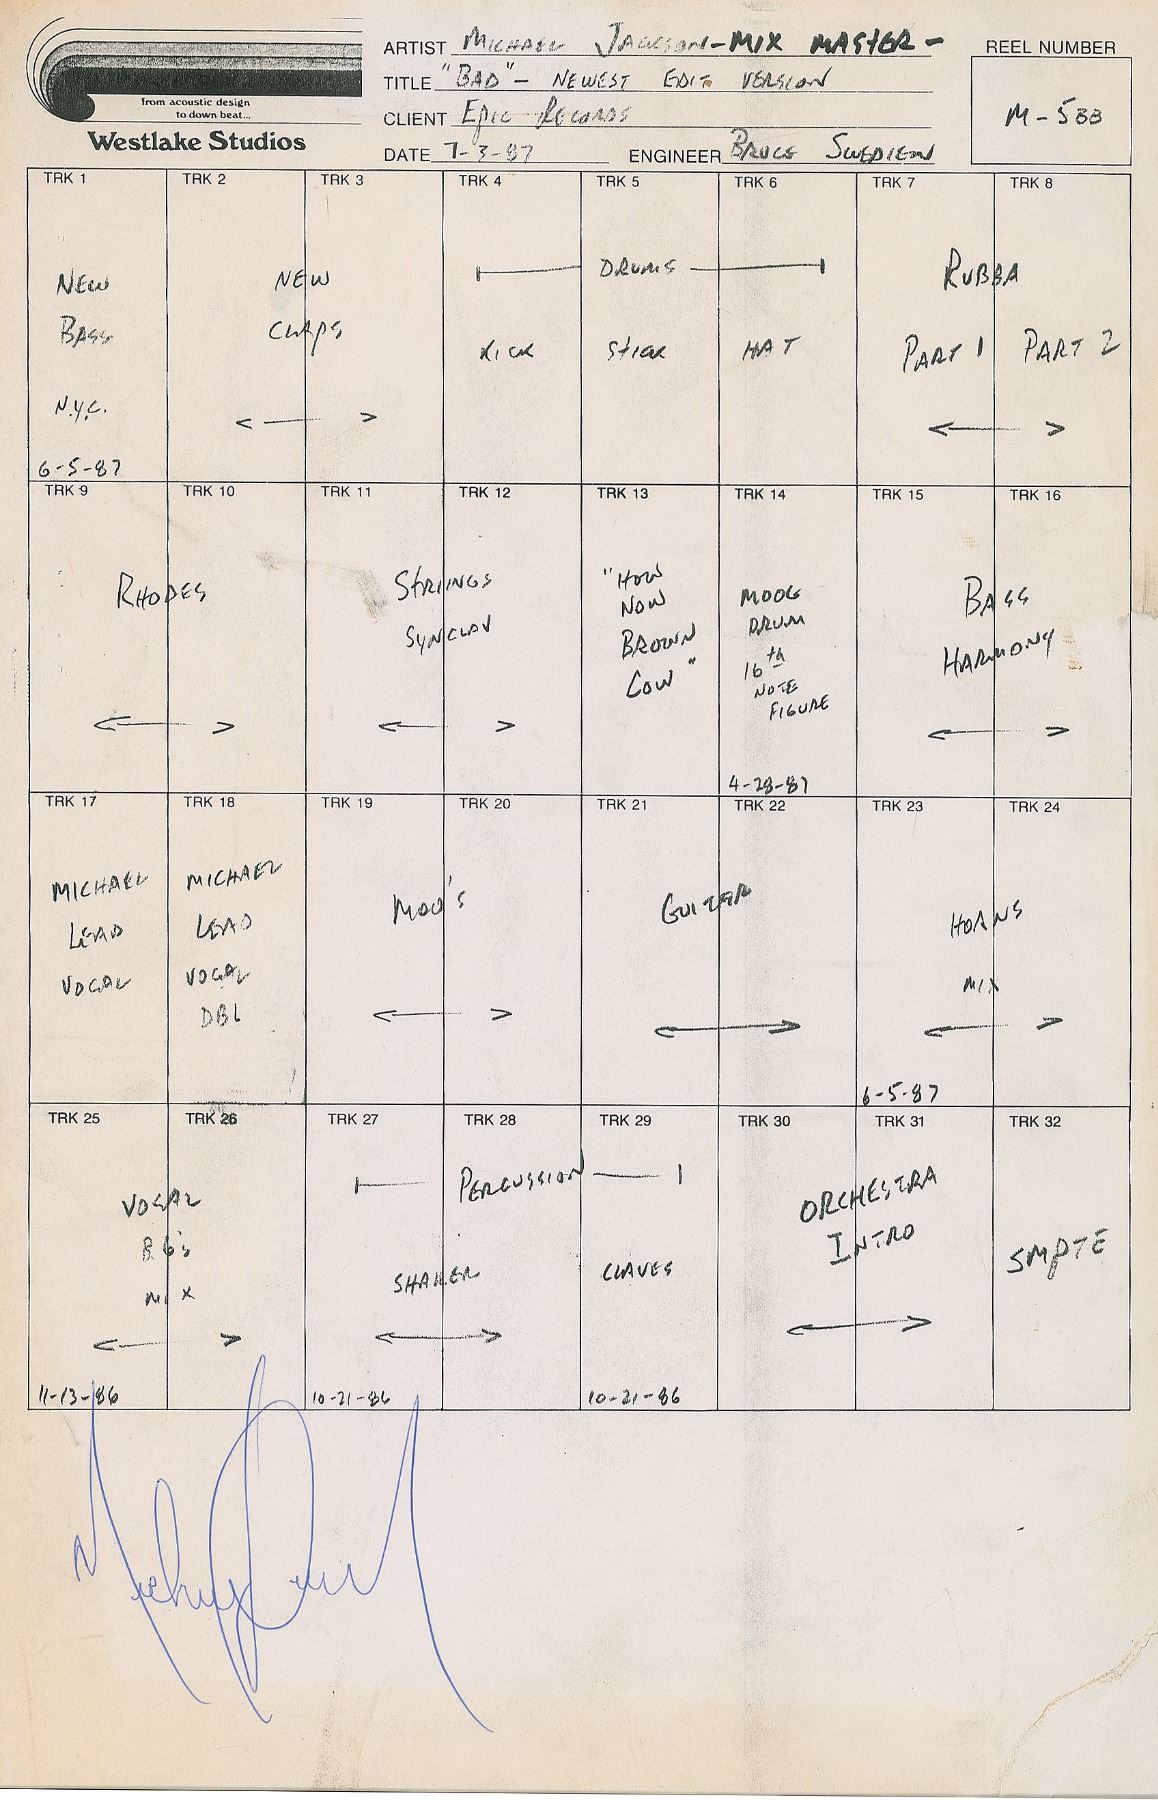 from acoustic design
to down beat...
Westlake Studios
ARTIST MICHAEL JACKSON-MIX MASTER-
TITLE "BAD"- NEWEST EDIT VERSION
CLIENT EPIC RECORDS
DATE 7-3-87 ENGINEER BRUCE SWEDIEN
REEL NUMBER
M-533
TRK 1 TRK 2 TRK 3 TRK 4 TRK 5 TRK 6 TRK 7 TRK 8
NEW
BASS
N.Y.C.
6-5-87
NEW
CLAPS
DRUMS
KICK STICK HAT
RUBBA
PART 1 PART 2
TRK 9 TRK 10 TRK 11 TRK 12 TRK 13 TRK 14 TRK 15 TRK 16
RHODES
STRINGS
SYNCLAV
"HOW
NOW
BROWN
COW"
MOOG
DRUM
16th
NOTE
FIGURE
4-28-87
BASS
HARMONY
TRK 17 TRK 18 TRK 19 TRK 20 TRK 21 TRK 22 TRK 23 TRK 24
MICHAEL
LEAD
VOCAL
MICHAEL
LEAD
VOCAL
DBL
MOO'S
GUITAR
HORNS
MIX
6-5-87
TRK 25 TRK 26 TRK 27 TRK 28 TRK 29 TRK 30 TRK 31 TRK 32
VOCAL
B.G's
MIX
11-13-86
PERCUSSION
SHAKER
10-21-86
CLAVES
10-21-86
ORCHESTRA
INTRO
SMPTE